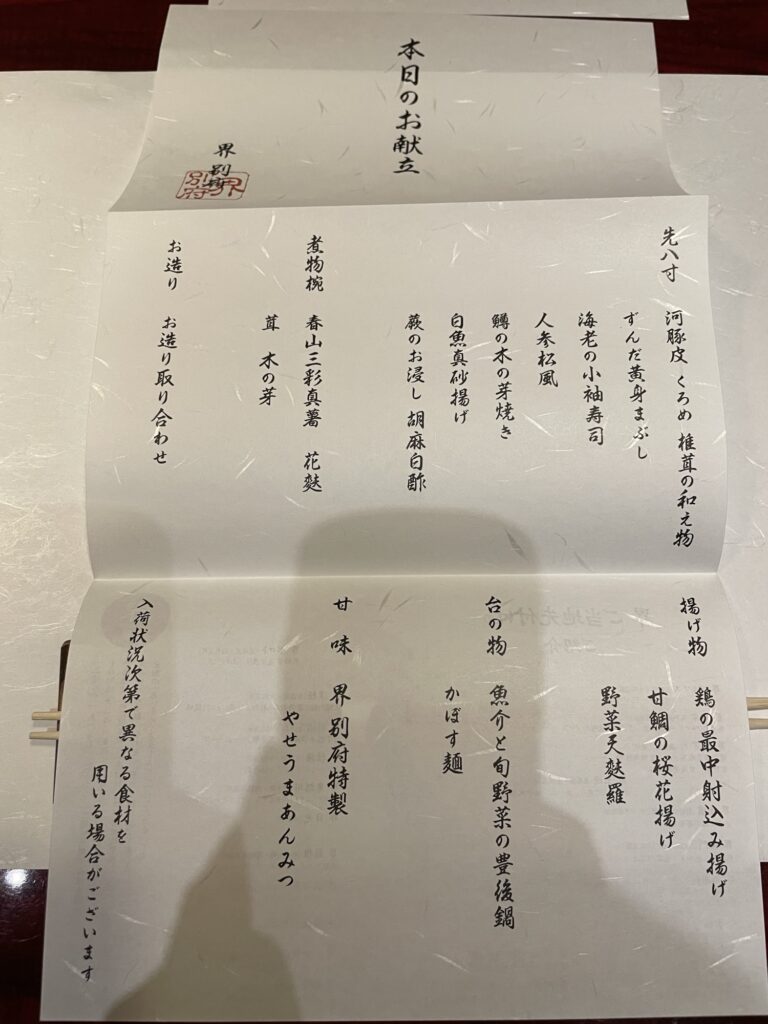 本日のお献立
界 別府
界別府
先八寸 河豚皮 くろめ 椎茸の和え物
ずんだ黄身まぶし
海老の小袖寿司
人参松風
鱒の木の芽焼き
白魚真砂揚げ
蕨のお浸し 胡麻白酢
煮物椀 春山三彩真薯 花麩
茸 木の芽
お造り お造り取り合わせ
揚げ物 鶏の最中射込み揚げ
甘鯛の桜花揚げ
野菜天麩羅
台の物 魚介と旬野菜の豊後鍋
かぼす麺
甘味 界 別府特製
やせうまあんみつ
入荷状況次第で異なる食材を
用いる場合がございます